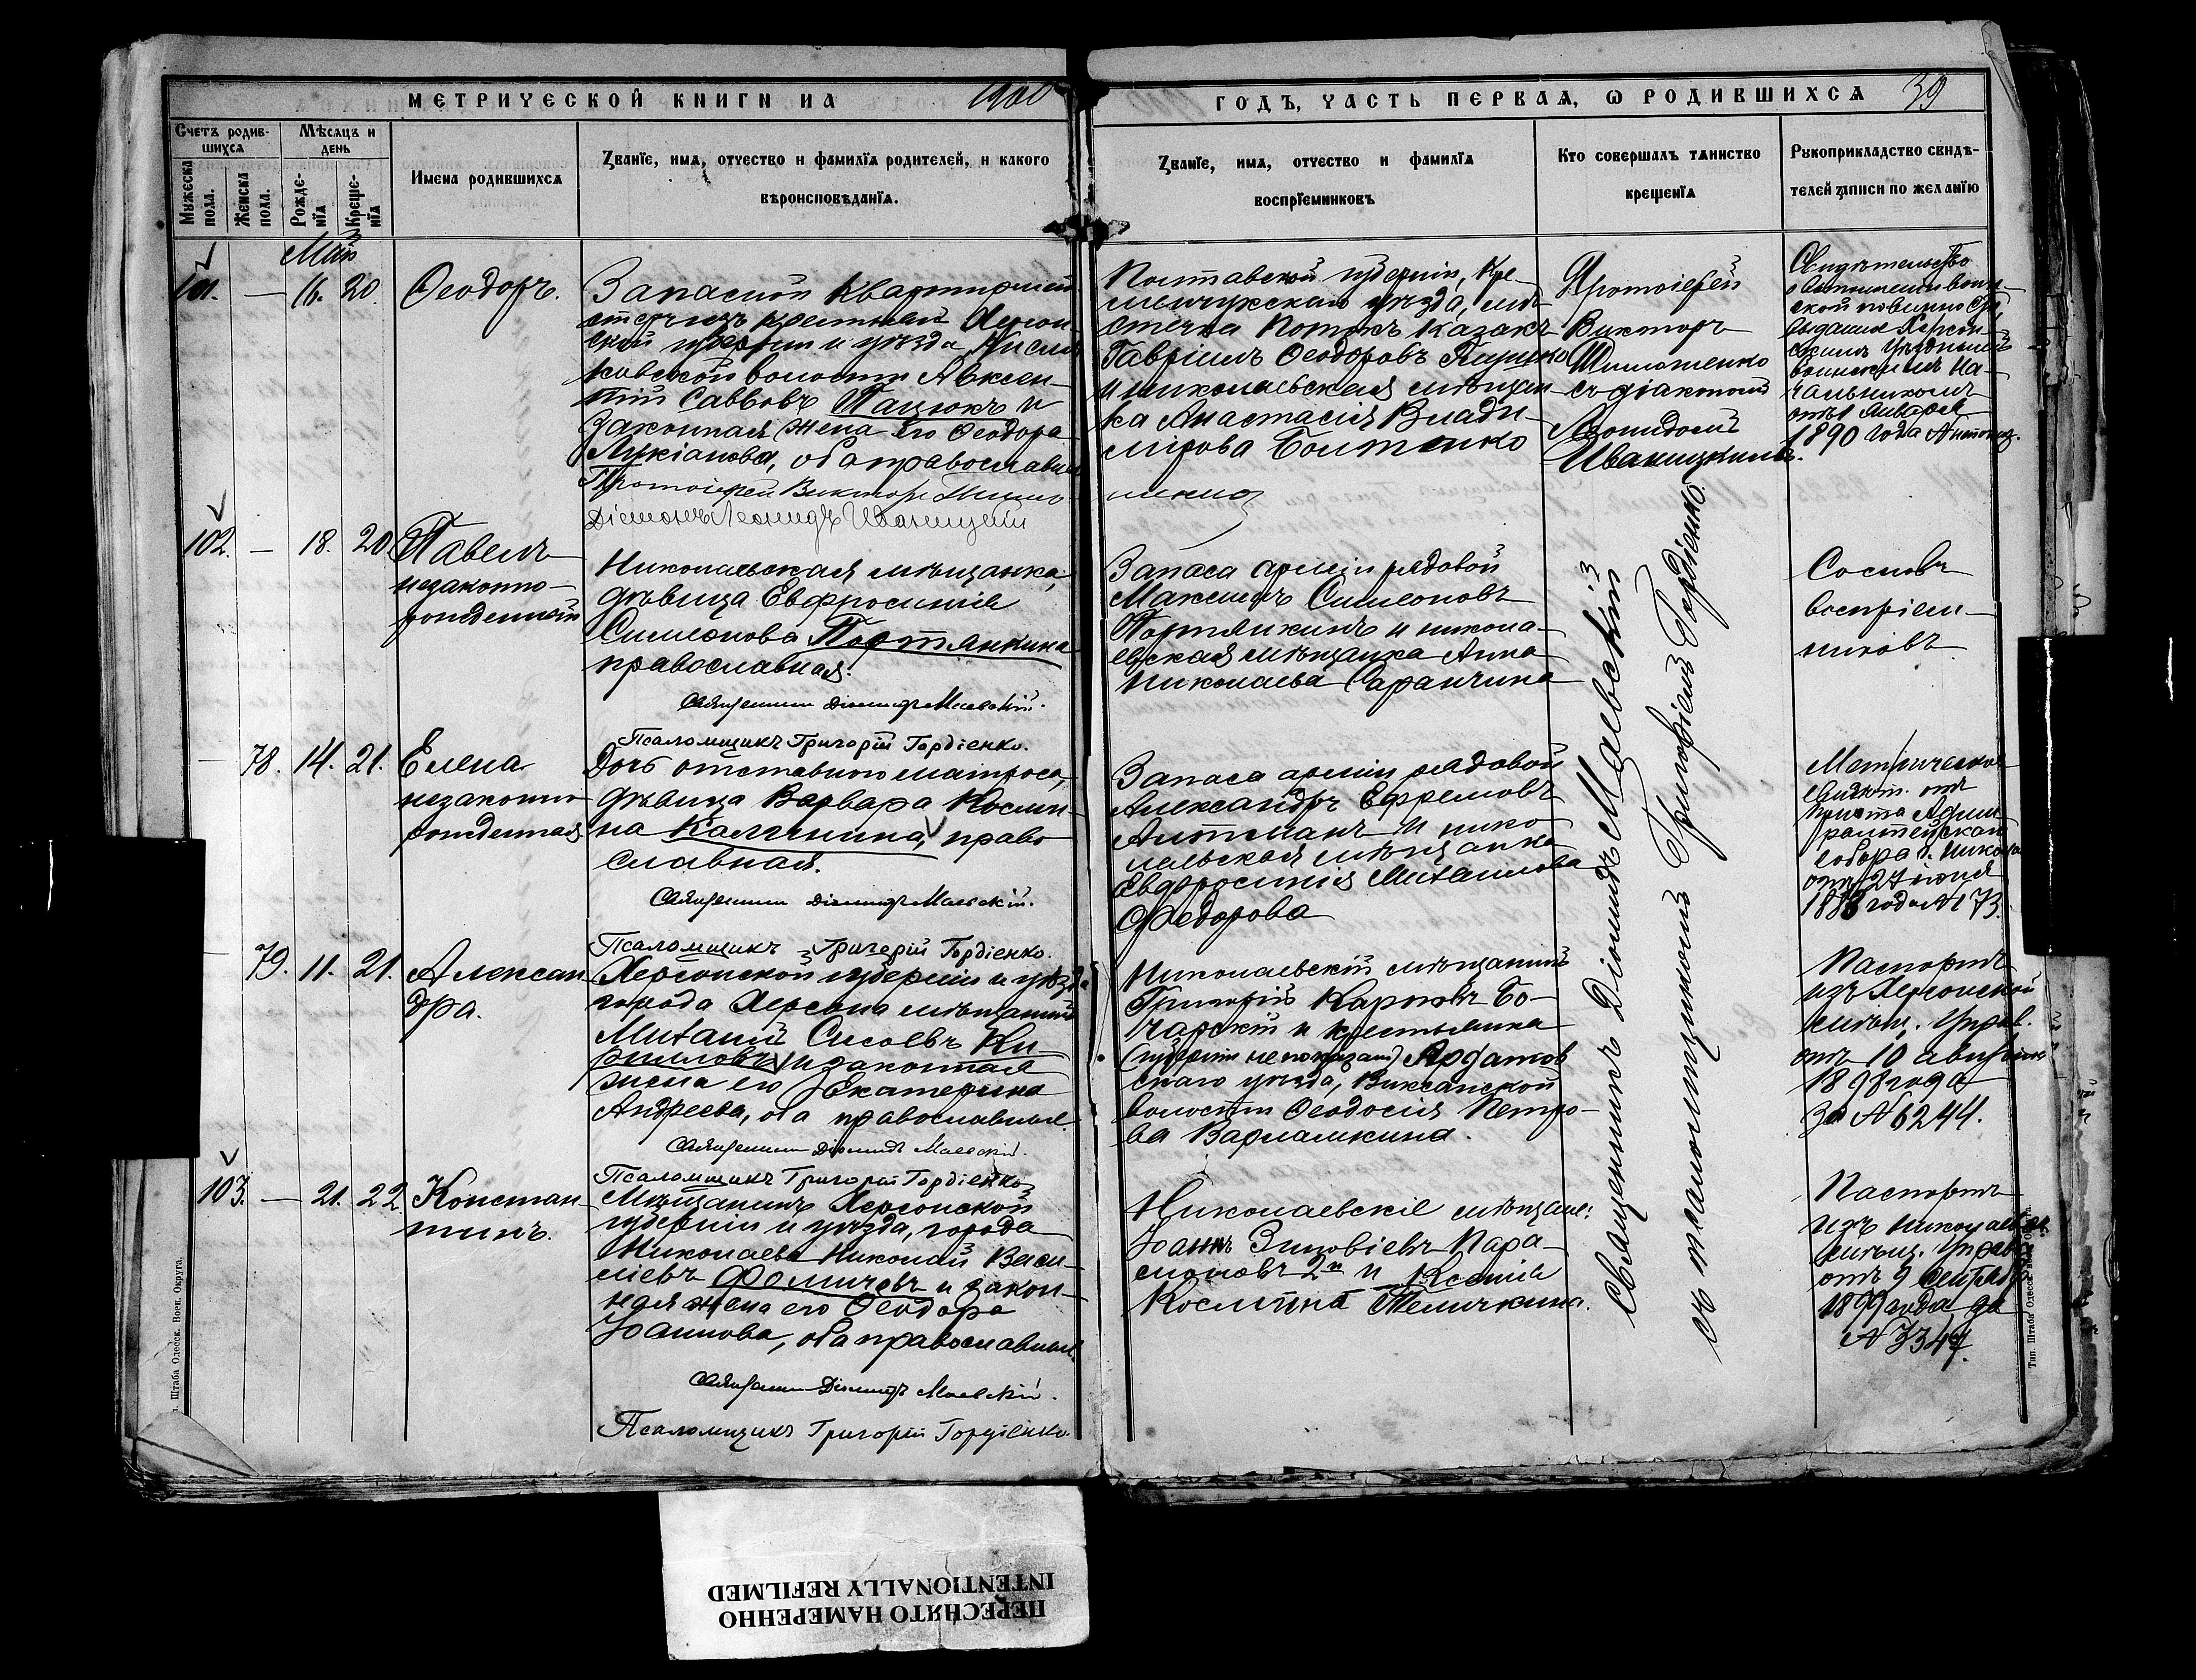 МЕТРИЧЕСКОЙ КНИГИ НА 1900
ГОДЪ, ЧАСТЬ ПЕРВАЯ, Ѡ РОДИВШИХСЯ 39
Счетъ родив-
шихся
Мужеска
пола.
Женска
пола.
Мѣсяцъ и
день
Рожде-
нїя
Креще-
нїя
Имена родившихся
Званїе, имя, отчество и фамилїя родителей, и какого
вѣроисповѣданїя.
Званїе, имя, отчество и фамилїя
воспрїемниковъ
Кто совершалъ таинство
крещенїя
Рукоприкладство свидѣ-
телей записи по желанїю
Май
101. — 16. 20. Ѳеодоръ.
Запасной квартирмей
стеръ изъ крестьянъ Херсон
ской губерніи и уѣзда
ковской волости Авксен-
тій Саввовъ Пацюкъ и
законная жена его Ѳеодора
Лукіанова, оба православн
Протоіерей Викторъ Шимо-
Діаконъ Леонидъ Иваницкій
Полтавской губерніи, Кре-
менчугскаго уѣзда, мѣ-
стечка Потокъ казакъ
Гавріилъ Ѳеодоровъ
и николаевская мѣщан
ка Анастасія Влади-
мірова Болтенко
Протоіерей
Викторъ
Шиможенко
съ діакономъ
Леонидомъ
Иваницкимъ.
Свидѣтельство
о выполненіи воин-
ской повинности,
выданное Херсон-
скимъ Уѣзднымъ
воинскимъ На-
чальникомъ
отъ 1 Января
1890 года
102. — 18. 20. Павелъ
незаконно-
рожденный
Николаевская мѣщанка,
дѣвица Евфросинія
Симеонова Портянкина
православная.
Священникъ Діомидъ Маевскій.
Псаломщикъ Григорій Гордіенко.
Запаса арміи рядовой
Максимъ Симеоновъ
Портянкинъ и никола-
евская мѣщанка Анна
Николаева Саранчина
Со словъ
воспріем-
никовъ
— 78. 14. 21. Елена
незаконно
рожденная.
Дочь отставного матроса,
дѣвица Варвара Косми-
на Калинина, право
славная.
Священникъ Діомидъ Маевскій.
Псаломщикъ Григорій Гордіенко.
Запаса арміи рядовой
Александръ Ефремовъ
и нико
лаевская мѣщанка
Евфросинія Михайлова
Федорова
Метрическое
свидѣт. отъ
причта Адми
ралтейскаго
собора г. Никола
отъ 27 іюня
1888 года № 173.
— 79. 11. 21. Алексан
дра.
Херсонской губерніи и уѣзда
города Херсона мѣщанинъ
Михаилъ Сисоевъ Ки-
рилловъ и законная
жена его Екатерина
Андреева, оба православные.
Священникъ Діомидъ Маевскій.
Псаломщикъ Григорій Гордіенко.
Николаевскій мѣщанинъ
Григорій Карповъ Бо-
чарскій и крестьянка
(губерніи не показано) Ардатов
скаго уѣзда, Виксанской
волости Ѳеодосія Петро-
ва Варламкина.
Паспортъ
изъ Херсонской
мѣщ. Управ.
отъ 10 августа
1898 года
за № 6244.
103. — 21. 22. Констан
тинъ.
Мѣщанинъ Херсонской
губерніи и уѣзда, города
Николаева Николай Васи-
ліевъ Фомичевъ и закон-
ная жена его Ѳеодора
Іоаннова, оба православные.
Священникъ Діомидъ Маевскій.
Псаломщикъ Григорій Гордіенко.
Николаевскіе мѣщане:
Іоаннъ Зиновіевъ Пара-
моновъ 2й и Ксенія
Космина Теличкина.
Паспортъ
изъ николаевск
мѣщ. Управ
отъ 9 Сентяб
1899 года за
№ 3347.
Священникъ Діомидъ Маевскій
съ псаломщикомъ Григоріемъ Гордіенко.
Штаба Одесск. Воен. Округа.
Тип. Штаба Одесск. Воен. Округа.
ПЕРЕСНЯТО НАМЕРЕННО
INTENTIONALLY REFILMED